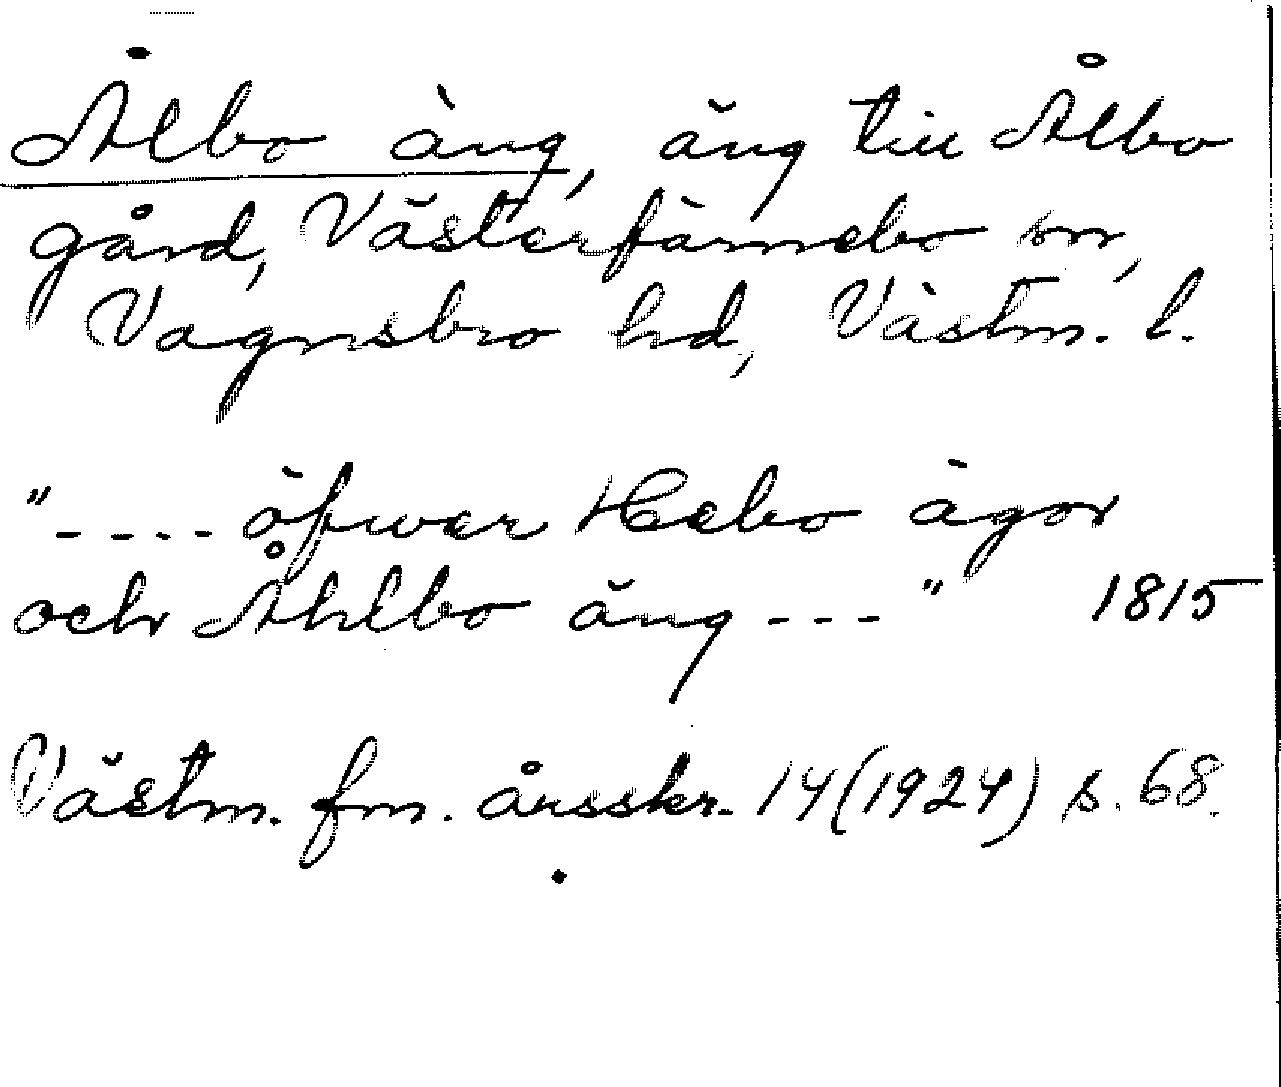 Ålbo äng, äng till Ålbo
gård, Västerfärnebo sn,
Vagnsbro hd, Västm. l.
"---- öfwer Hebo ägor
och Åhlbo äng---" 1815
Västm. fm. årsskr. 14(1924) s. 68.